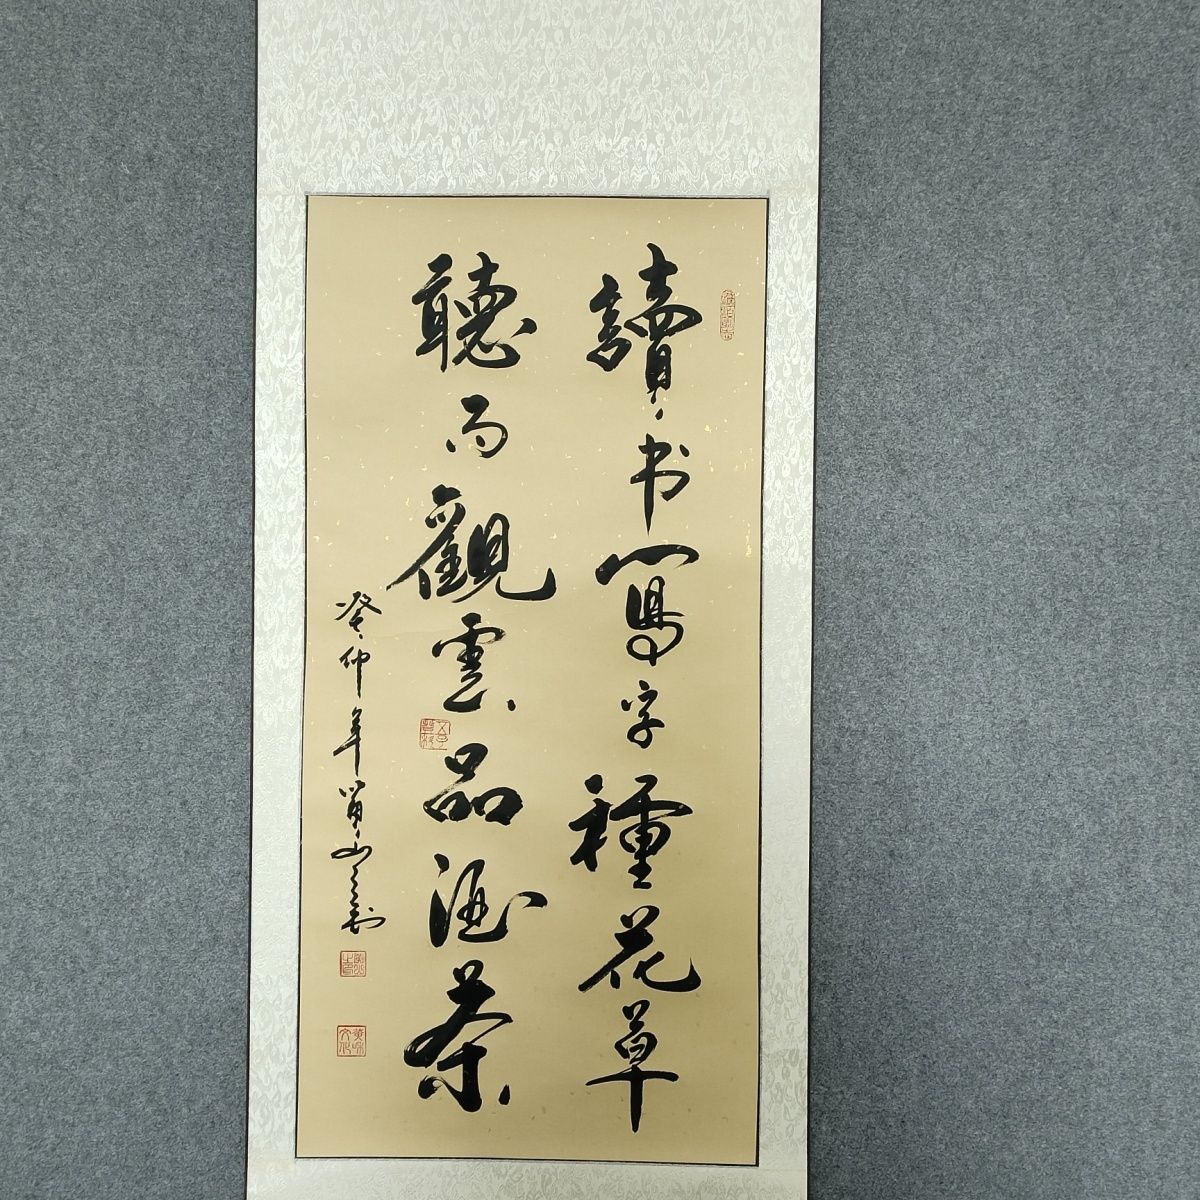 讀书寫字種花草
聽雨觀雲品酒茶
癸卯年